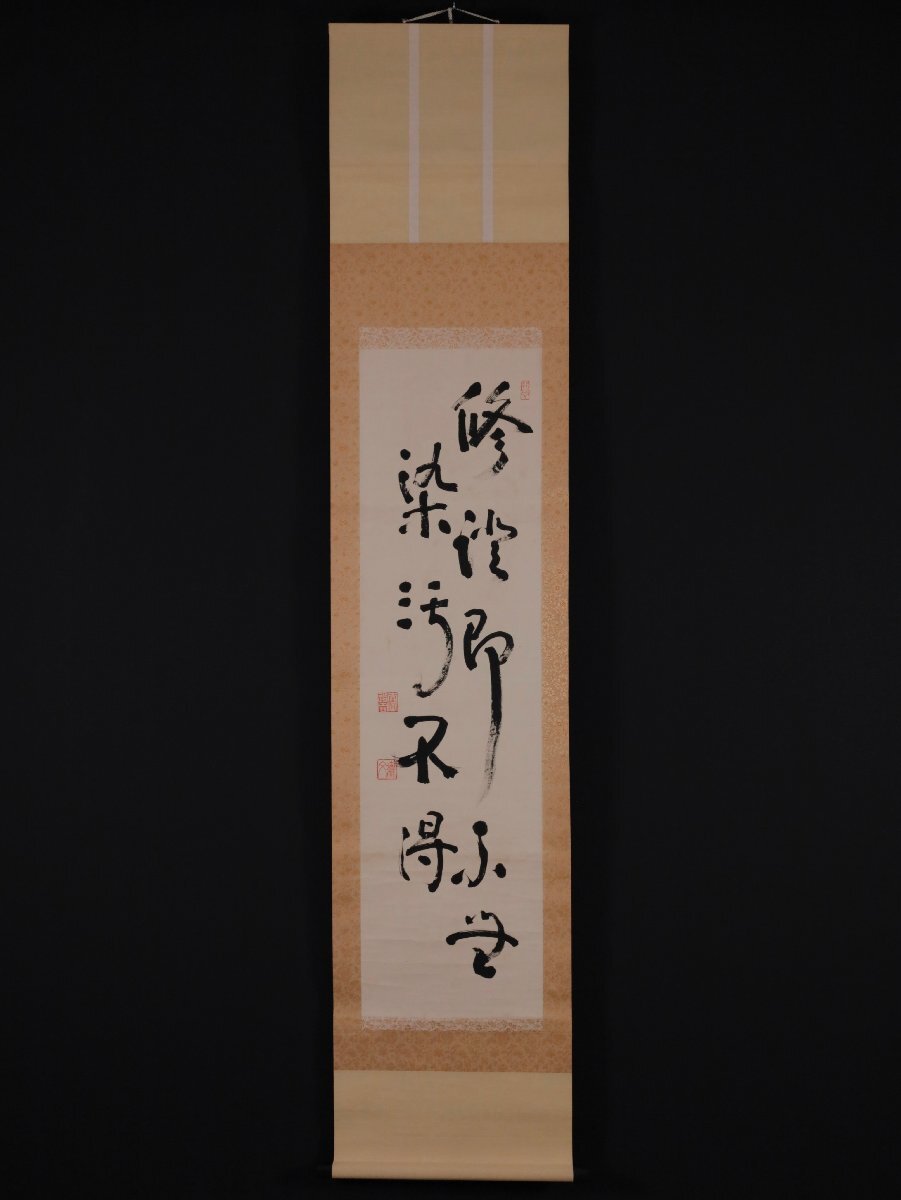 修證即不無
染汚不得